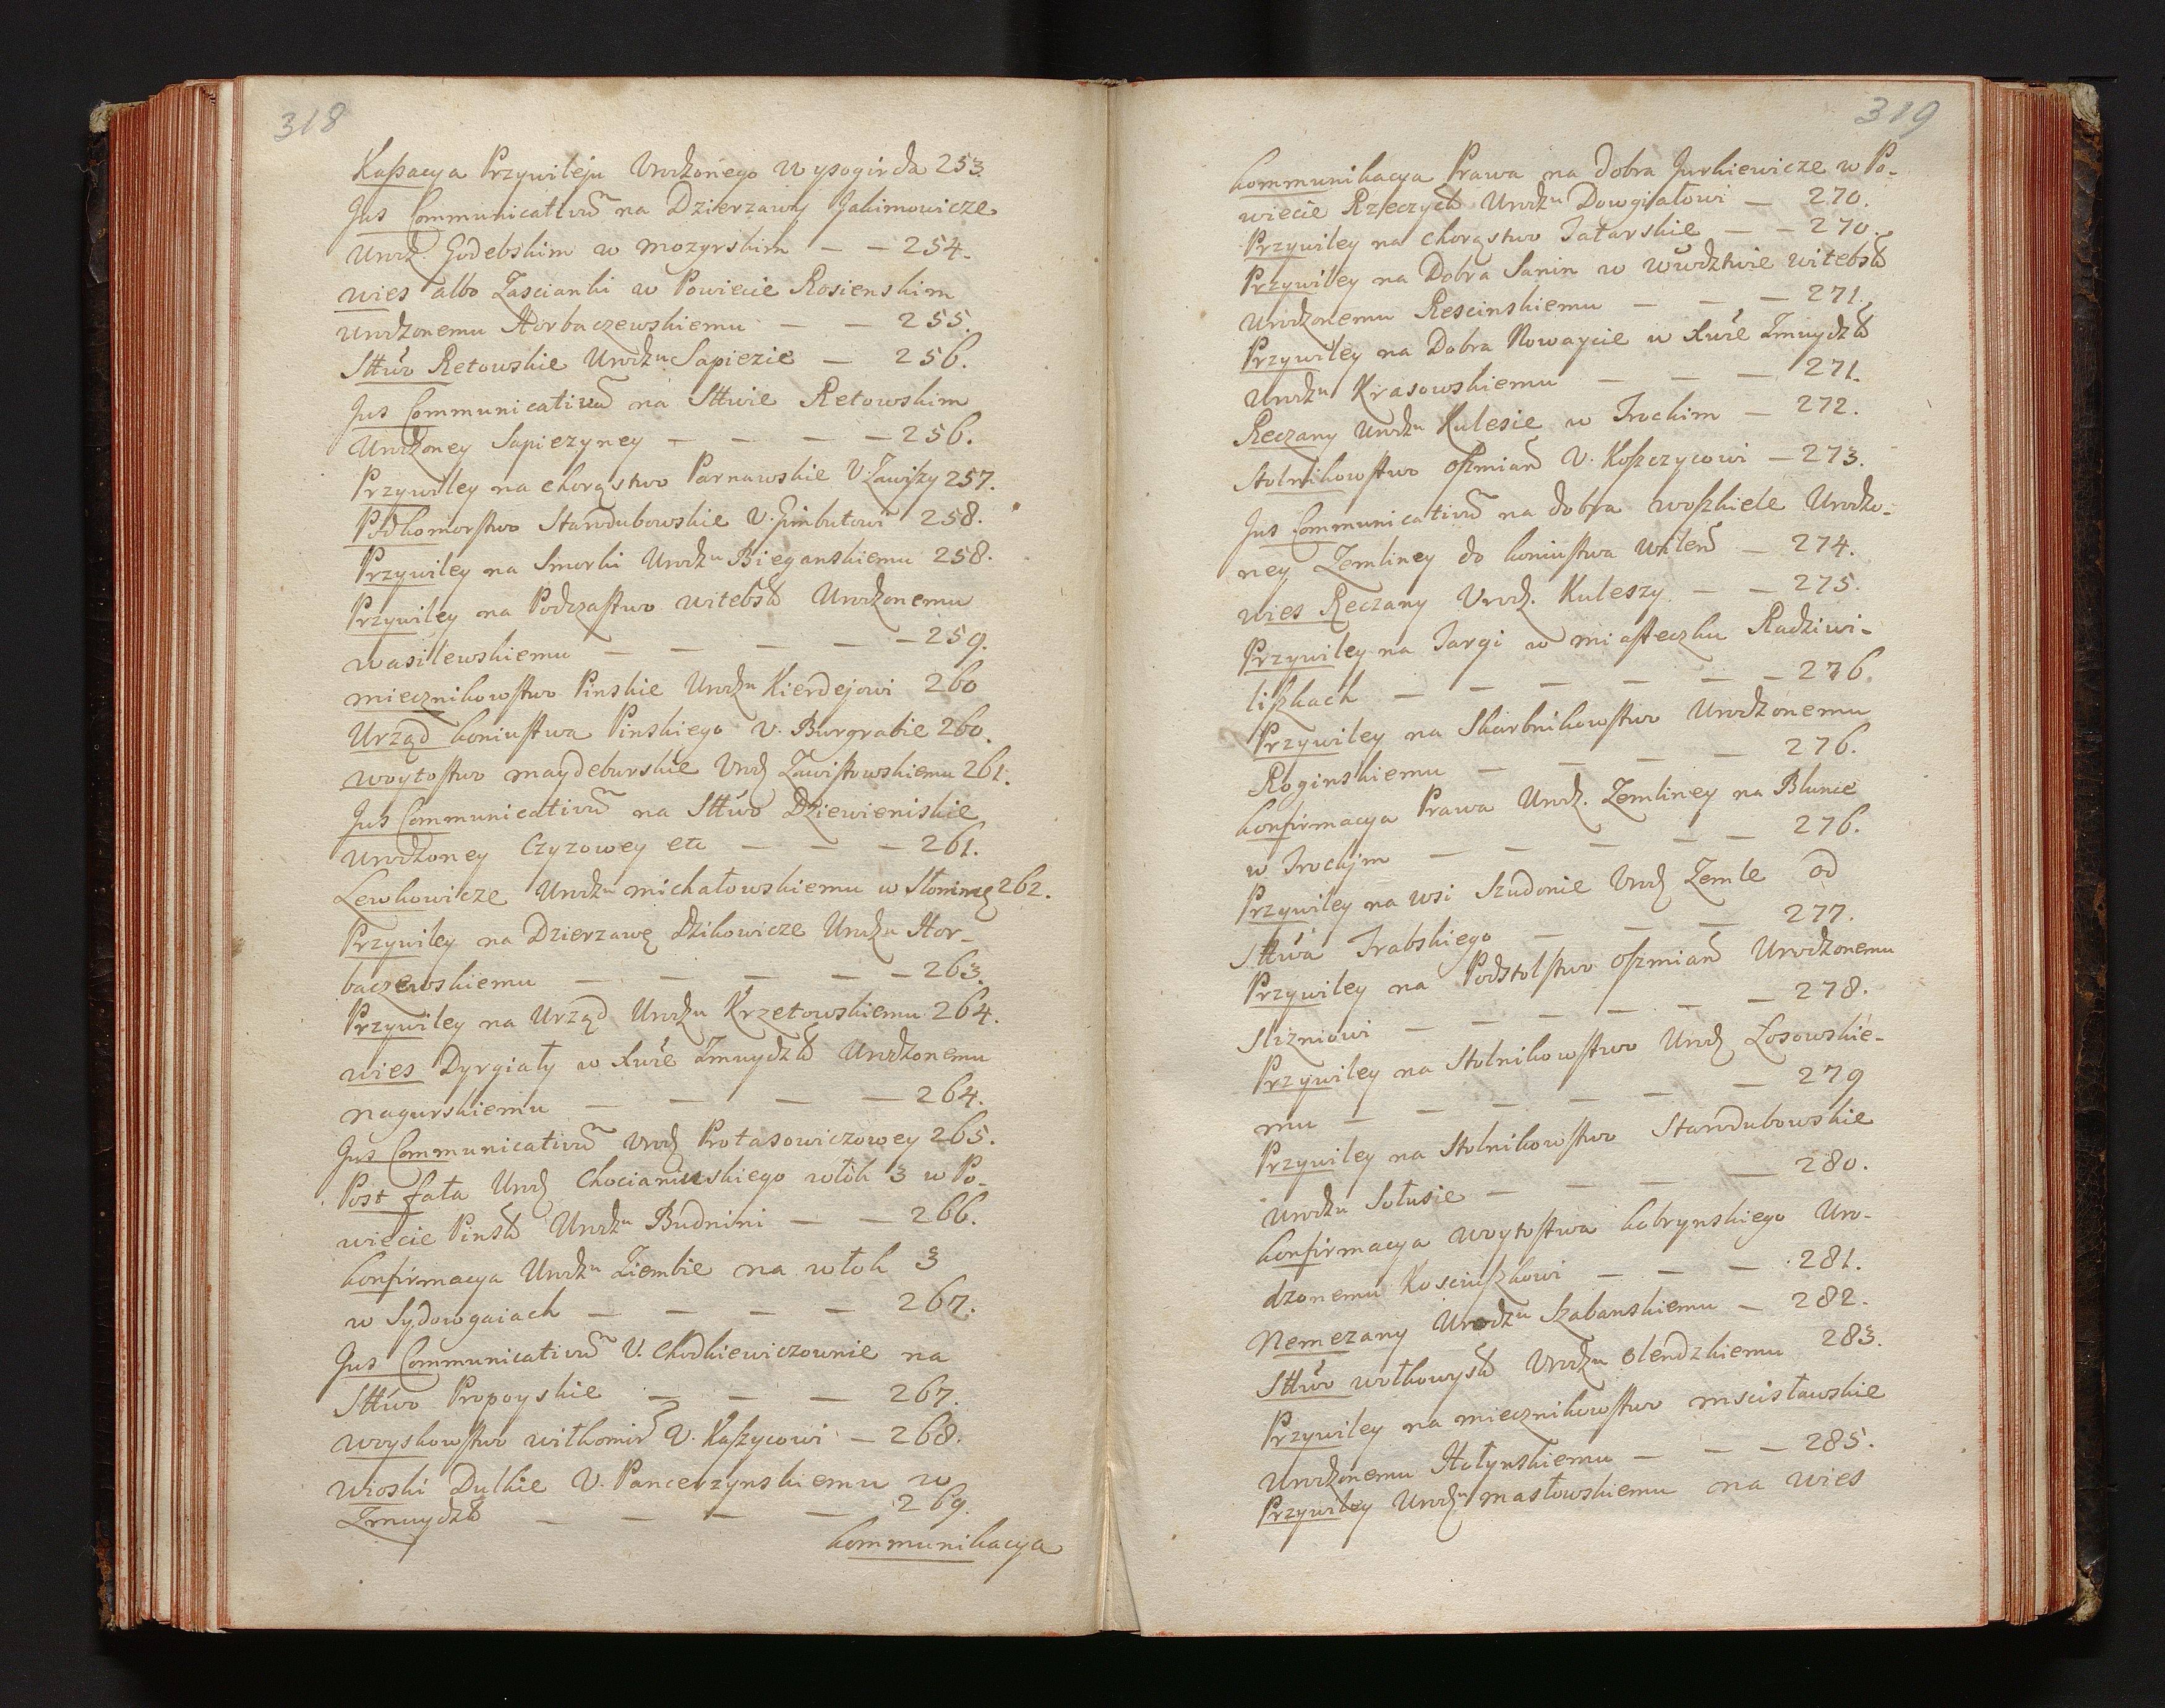 318
Kaßacya Przywileju Urodzonego Wysogirda 253.
Jus Communicativũ na Dzierzawy Jakimowicze
Urodz. Godebskim w Mozyrskim — — 254.
Wies albo Zascianki w Powiecie Rosienskim
Urodzonemu Horbaczewskiemu — — 255.
Sttwo Retowskie Urodzu Sapiezie — 256.
Jus Communicativũ na Sttwie Retowskim
Urodzoney Sapiezyney — — — — 256.
Przywiley na Chorąstwo Parnawskie U. Zawiszy 257.
Podkomorstwo Starodubowskie U. Gimbutowi 258.
Przywiley na Smorki Urodzu Bieganskiemu 258.
Przywiley na Podczastwo Witebsk Urodzonemu
Wasilewskiemu — — — — — 259.
Miecznikowstwo Pinskie Urodzu Kierdejowi 260
Urząd Koniustwa Pinskiego U. Burgrabie 260.
Woytostwo Maydeburskie Urodz Zawistowskiemu 261.
Jus Communicativũ na Sttwo Dziewieniskie
Urodzoney Czyzowey etc — — — 261.
Lewkowicze Urodzu Michałowskiemu w Słonimę 262.
Przywiley na Dzierzawę Dzikowicze Urodzu Hor-
baczewskiemu — — — — — 263.
Przywiley na Urząd Urodzu Krzetowskiemu 264.
Wies Dyrgiały w Xwie Zmuydzk Urodzonemu
Nagurskiemu — — — — 264.
Jus Communicativũ Urodz Protasowiczowey 265.
Post fata Urodz Chocianiewskiego włok 3 w Po-
wiecie Pinsk Urodzu Budnini — — 266.
Konfirmacya Urodzu Ziembie na włok 3
w Sydowgaiach — — — — 267.
Jus Communicativũ U. Chodkiewiczownie na
Sttwo Propoyskie — — — 267.
Woyskowstwo Wiłkomir U. Kaszycowi — 268.
Wioski Dulkie U. Pancerzynskiemu w
Zmuydzk — — — — 269.
Kommunikacya
319
Kommunikacya Prawa na Dobra Jurkiewicze w Po-
wiecie Rzeczyck Urodzu Dowgiałowi — 270.
Przywiley na Chorąstwo Tatarskie — — 270.
Przywiley na Dobra Sanin w Wwodztwie Witebsk
Urodzonemu Rescinskiemu — — — 271.
Przywiley na Dobra Nowaycie w Xwie Zmuydzk
Urodzu Krasowskiemu — — — 271.
Reczany Urodzu Kulesie w Trockim — 272.
Stolnikowstwo Oszmian U. Koszczycowi — 273.
Jus Communicativũ na dobra Woszkiele Urodzo-
ney Zemliney do Koniustwa Wilen — 274.
Wies Reczany Urodz. Kuleszy — — 275.
Przywiley na Targi w miasteczku Radziwi-
liszkach — — — — — — 276.
Przywiley na Skarbnikowstwo Urodzonemu
Roginskiemu — — — — 276.
Konfirmacya Prawa Urodz. Zemliney na Blunie
w Trockjm — — — — — 276.
Przywiley na wsi Szudonie Urodz Zemle od
Sttwa Trabskiego — — — 277.
Przywiley na Podstolstwo Oszmian Urodzonemu
Slizniowi — — — — — — 278.
Przywiley na Stolnikowstwo Urodz Łosowskie-
mu — — — — — — 279
Przywiley na Stolnikowstwo Starodubowskie
Urodzu Sołusie — — — — 280.
Konfirmacya Woytostwa Kobrynskiego Uro-
dzonemu Kosciuszkowi — — — 281.
Niemezany Urodzu Szabanskiemu — 282.
Sttwo Wołkowysk Urodzu Olendzkiemu 283.
Przywiley na Miecznikowstwo Mscisławskie
Urodzonemu Hołynskiemu — — — 285.
Przywiley Urodzu Masłowskiemu na Wies